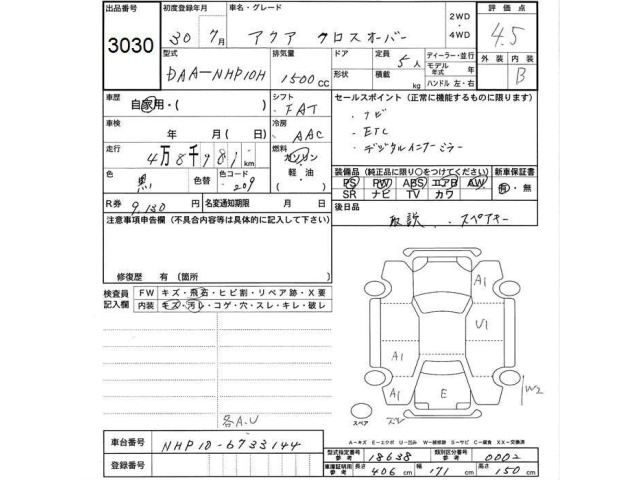 出品番号
3030
初度登録年月
30 7月
車名・グレード
アクア クロスオーバー
2WD
・
4WD
評価点
4.5
外装 内装
B
型式
DAA-NHP10H
排気量
1500cc
ドア
形状
定員
5人
積載
kg
ディーラー・並行
モデル年式 年
ハンドル 左・右
車歴
自家用・( )
シフト
FAT
車検
年 月(日)
冷房
AAC
走行
4万8千981km
燃料
ガソリン
軽・油
色
黒
色替
色コード
209
R券 9,130
名変通知期限 月 日
セールスポイント(正常に機能するものに限ります)
・ナビ
・ETC
・デジタルインナーミラー
装備品(純正品に限り○をつけてください)
新車保証書
PS PW ABS エアB AW
有・無
SR ナビ TV カワ
後日品
取説、スペアキー
注意事項申告欄(不具合内容等は具体的に記入して下さい)
修復歴 有(箇所 )
検査員
記入欄
FW キズ・飛石・ヒビ割・リペア跡・X要
内装 キズ・汚レ・コゲ・穴・スレ・キレ・破レ
各A.U
A1
U1
A1
A1
E
W2
スペア
A-キズ E-エクボ U-凹み W-補修跡 S-サビ C-腐食 XX-交換済
車台番号
NHP10-6733144
登録番号
型式指定番号
参考
18638
類別区分番号
参考
0002
車庫証明用
参考
長さ 406cm
幅 171cm
高さ 150cm